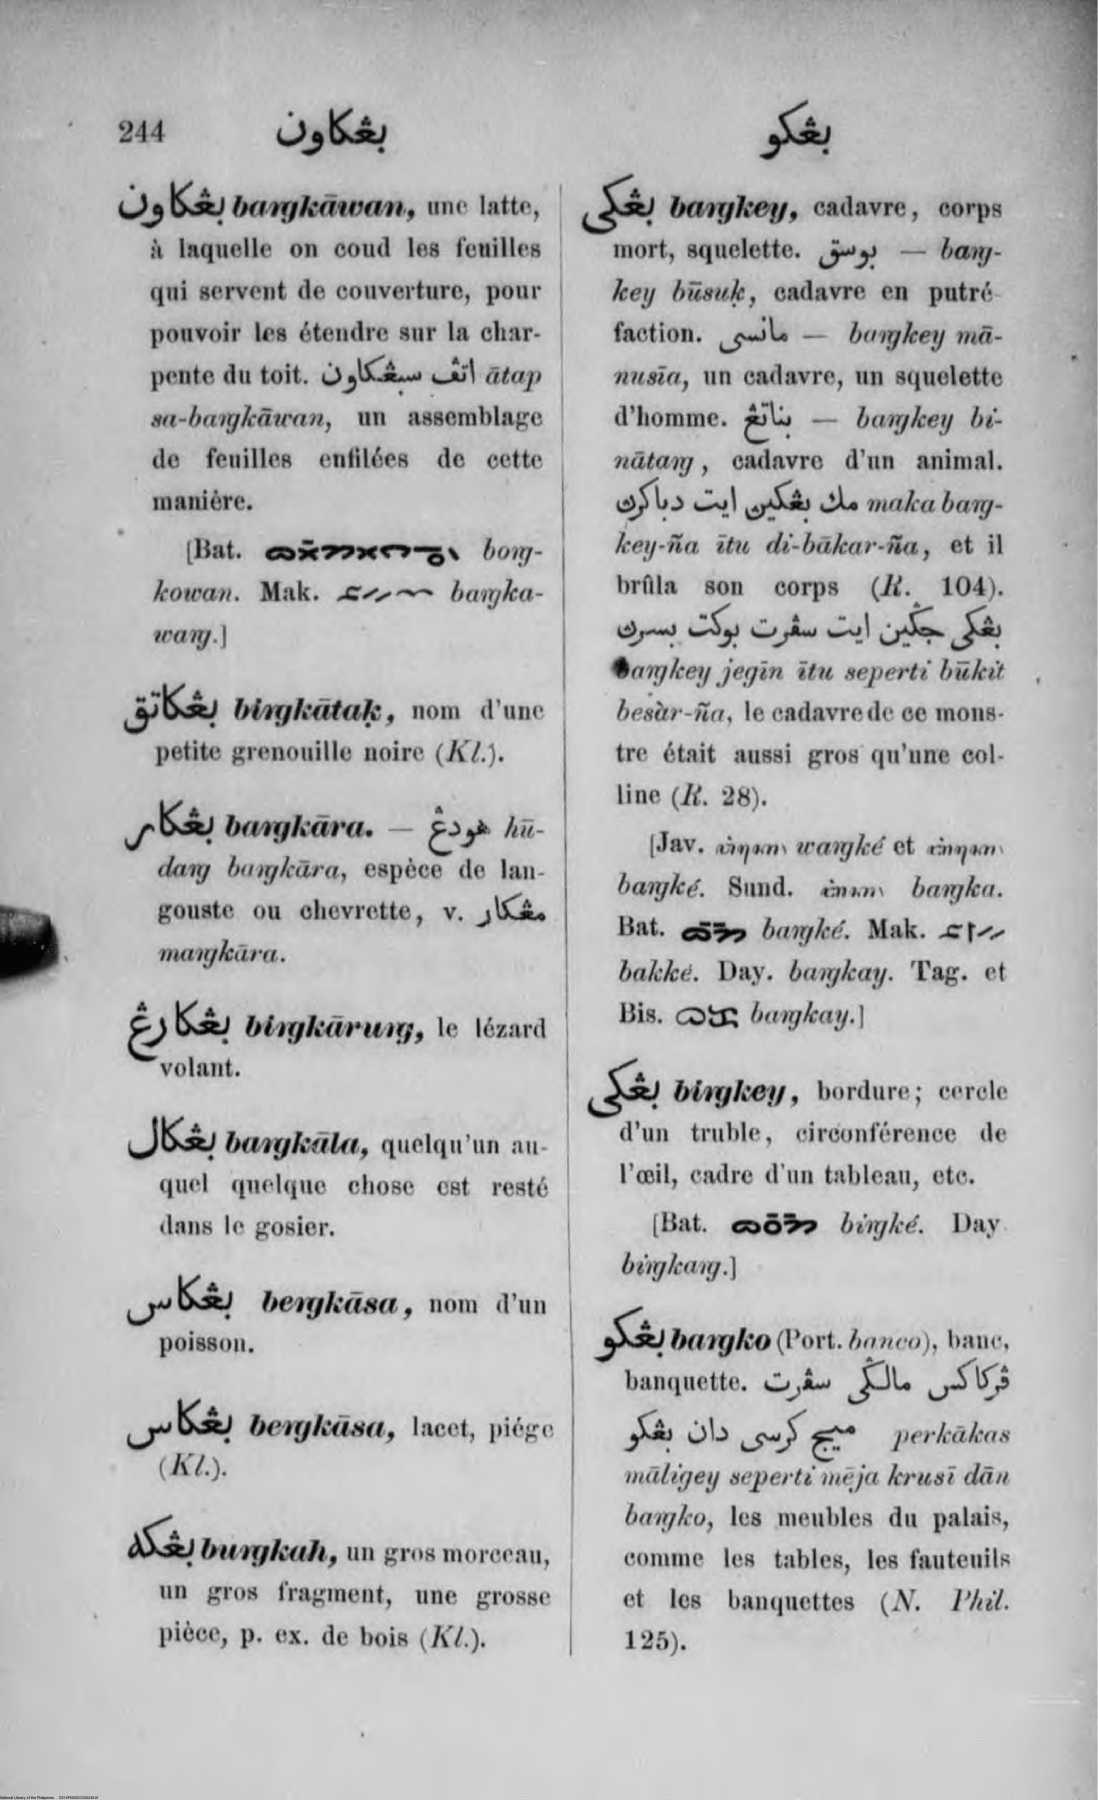 244 بڠكاون بڠكو
بڠكاون baŋkāwan, une latte,
à laquelle on coud les feuilles
qui servent de couverture, pour
pouvoir les étendre sur la char-
pente du toit. اتڤ سبڠكاون ātap
sa-baŋkāwan, un assemblage
de feuilles enfilées de cette
manière.
[Bat. boŋ-
kowan. Mak. baŋka-
waŋ.]
بڠكاتق biŋkātaḳ, nom d'une
petite grenouille noire (Kl.).
بڠكار baŋkāra. — هودڠ hū-
daŋ baŋkāra, espèce de lan-
gouste ou chevrette, v. مڠكار
maŋkāra.
بڠكارڠ biŋkāruŋ, le lézard
volant.
بڠكال baŋkāla, quelqu'un au-
quel quelque chose est resté
dans le gosier.
بڠكاس beŋkāsa, nom d'un
poisson.
بڠكاس beŋkāsa, lacet, piége
(Kl.).
بڠكه buŋkah, un gros morceau,
un gros fragment, une grosse
pièce, p. ex. de bois (Kl.).
بڠكى baŋkey, cadavre, corps
mort, squelette. بوسق — baŋ-
key būsuḳ, cadavre en putré-
faction. مانسى — baŋkey mā-
nusīa, un cadavre, un squelette
d'homme. بناتڠ — baŋkey bi-
nātaŋ, cadavre d'un animal.
مك بڠكين ايت دباكرن maka baŋ-
key-ña ītu di-bākar-ña, et il
brûla son corps (R. 104).
بڠكى جڬين ايت سڤرت بوكت بسرن
baŋkey jegīn ītu seperti būkit
besàr-ña, le cadavre de ce mons-
tre était aussi gros qu'une col-
line (R. 28).
[Jav. waŋké et
baŋké. Sund. baŋka.
Bat. baŋké. Mak.
bakké. Day. baŋkay. Tag. et
Bis. baŋkay.]
بڠكى biŋkey, bordure; cercle
d'un truble, circonférence de
l'œil, cadre d'un tableau, etc.
[Bat. biŋké. Day
biŋkaŋ.]
بڠكو baŋko (Port. banco), banc,
banquette. ڤركاكس مالڬى سڤرت
ميج كرسى دان بڠكو perkākas
māligey seperti mēja krusī dān
baŋko, les meubles du palais,
comme les tables, les fauteuils
et les banquettes (N. Phil.
125).